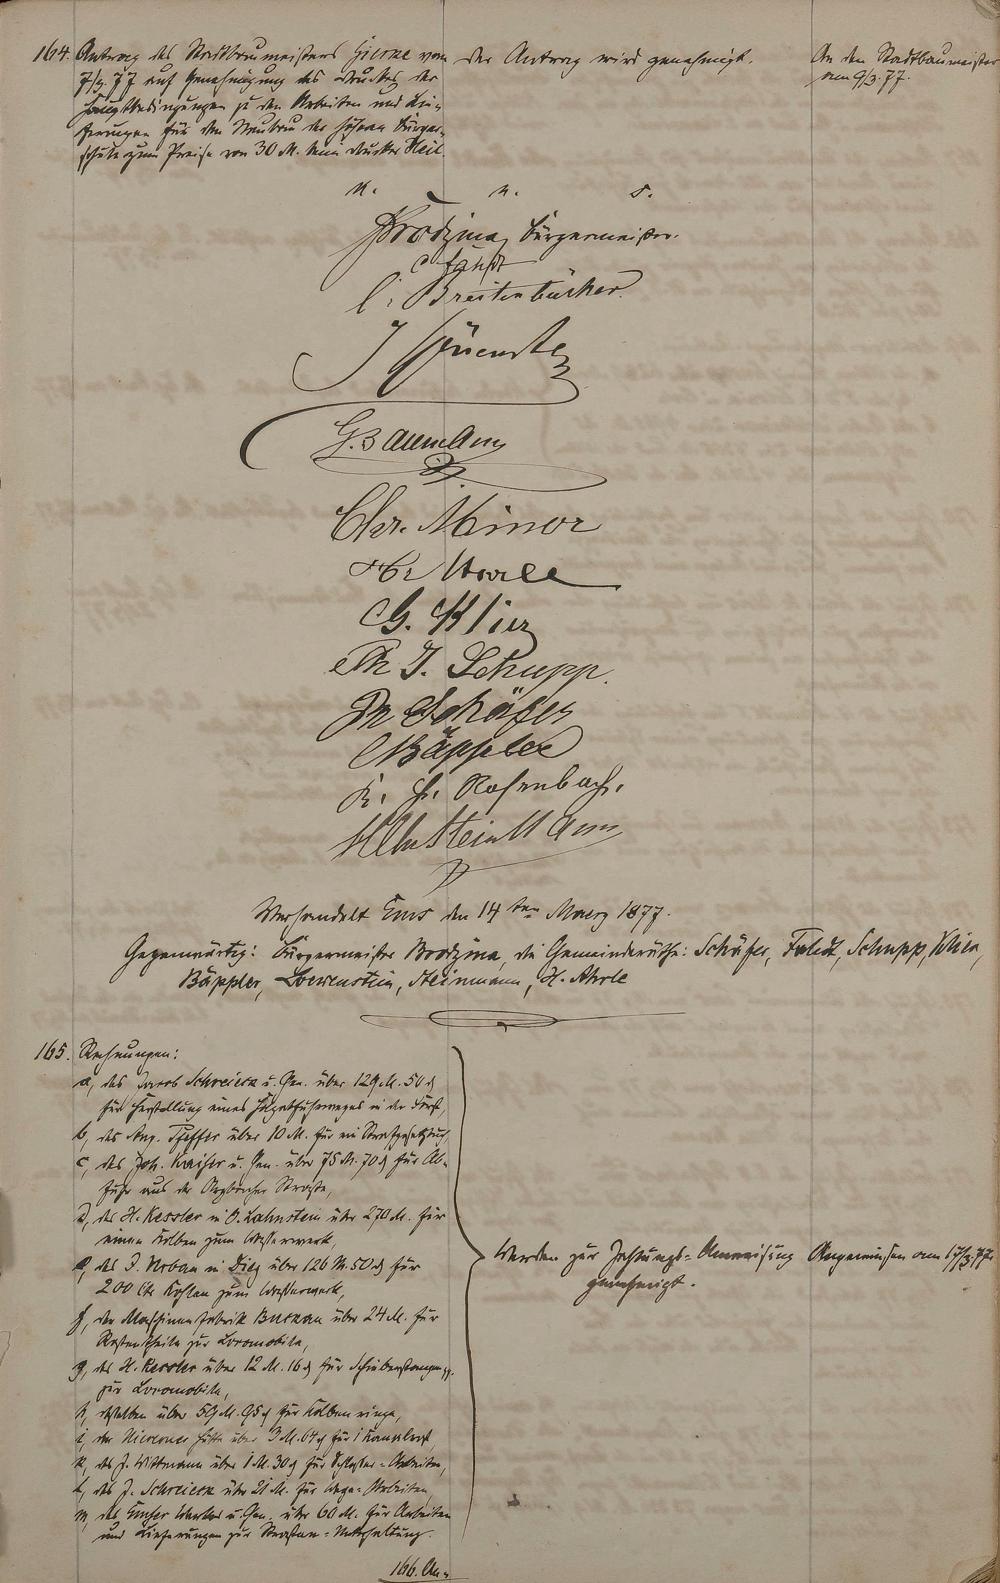 164. Antrag des Stadtbaumeisters Gierke vom
7/3.77 auf Genehmigung des Druckes der
Hauptbedingungen zu den Arbeiten und Lie-
ferungen für den Neubau der höheren Bürger-
schule zum Preise von 30 M.
Der Antrag wird genehmigt.
An den Stadtbaumeister
am 9/3.77.
v. u.
Bürgermeister.
C. Breitenbücher
G. Baumann
Chr. Minor
G. Klier
Ph J. Schupp.
Schäfer
Bäppler
K. H. Rosenbach.
Steinmann
Verhandelt Ems den 14ten Maerz 1877.
Gegenwärtig: Bürgermeister Brodzina, die Gemeinderäthe: Schäfer, Schupp, Klier,
Bäppler, Loewenstein, Steinmann,
165. Rechnungen:
a, des Jacob Schreieck u. Gen. über 129 M. 50 ₰
für Herstellung eines Holzabfuhrweges in der
b, des Aug. Pfeffer über 10 M. für ein Strafgesetzbuch,
c, des Joh. Kaiser u. Gen. über 75 M. 70 ₰ für Ab-
fuhr aus der Straße,
d, des H. Kessler in O. Lahnstein über 270 M. für
einen Kolben zum Wasserwerk,
e, des J. Urban in Diez über 126 M. 50 ₰ für
200 Ctr Kohlen zum Wasserwerk,
f, der Maschinenfabrik Buckau über 24 M. für
zur Locomobile,
g, des H. Kessler über 12 M. 16 ₰ für Schieberstangen pp.
zur Locomobile,
h, über 59 M. 95 ₰ für Kolbenringe,
i, der Nieverner Hütte über 3 M. 64 ₰ für 1
k, des J. Wittmann über 1 M. 30 ₰ für Schlosser-Arbeiten,
l, des J. Schreieck über 21 M. für Wege-Arbeiten,
m, des u. Gen. über 60 M. für Arbeiten
und Lieferungen zur Straßen-Unterhaltung.
Werden zur Zahlungs-Anweisung
genehmigt.
Angewiesen am 17/3.77.
166. An-